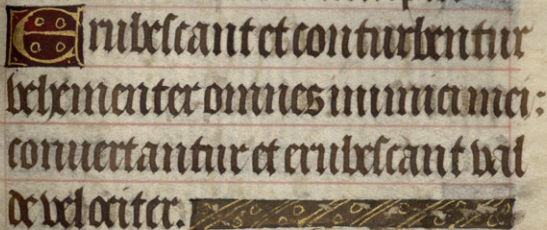 Erubescant et conturbentur
vehementer omnes inimici mei:
conuertantur et erubescant val
de velociter.